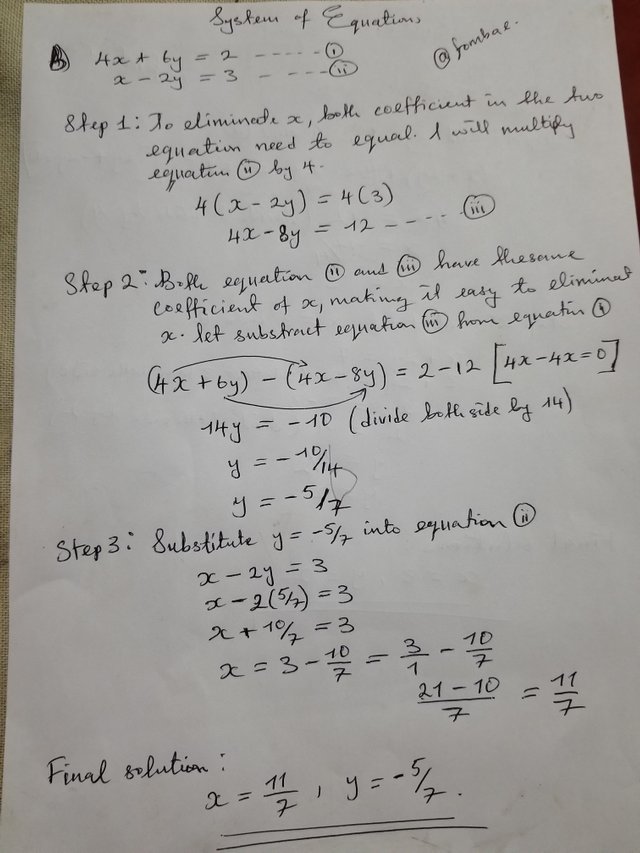 System of Equations
@fombae.
4x + 6y = 2 ----- (i)
x - 2y = 3 - ---- (ii)
Step 1: To eliminate x, both coefficient in the two
equation need to equal. I will multiply
equation (ii) by 4.
4(x - 2y) = 4(3)
4x - 8y = 12 ----- (iii)
Step 2: Both equation (ii) and (iii) have thesame
coefficient of x, making it easy to eliminat
x. let substract equation (iii) from equatin (i)
(4x + 6y) - (4x - 8y) = 2 - 12 [4x - 4x = 0]
14y = -10 (divide both side by 14)
y = -10/14
y = -5/7
Step 3: Substitute y = -5/7 into equation (ii)
x - 2y = 3
x - 2(5/7) = 3
x + 10/7 = 3
x = 3 - 10/7 = 3/1 - 10/7
21 - 10/7 = 11/7
Final solution:
x = 11/7, y = -5/7.